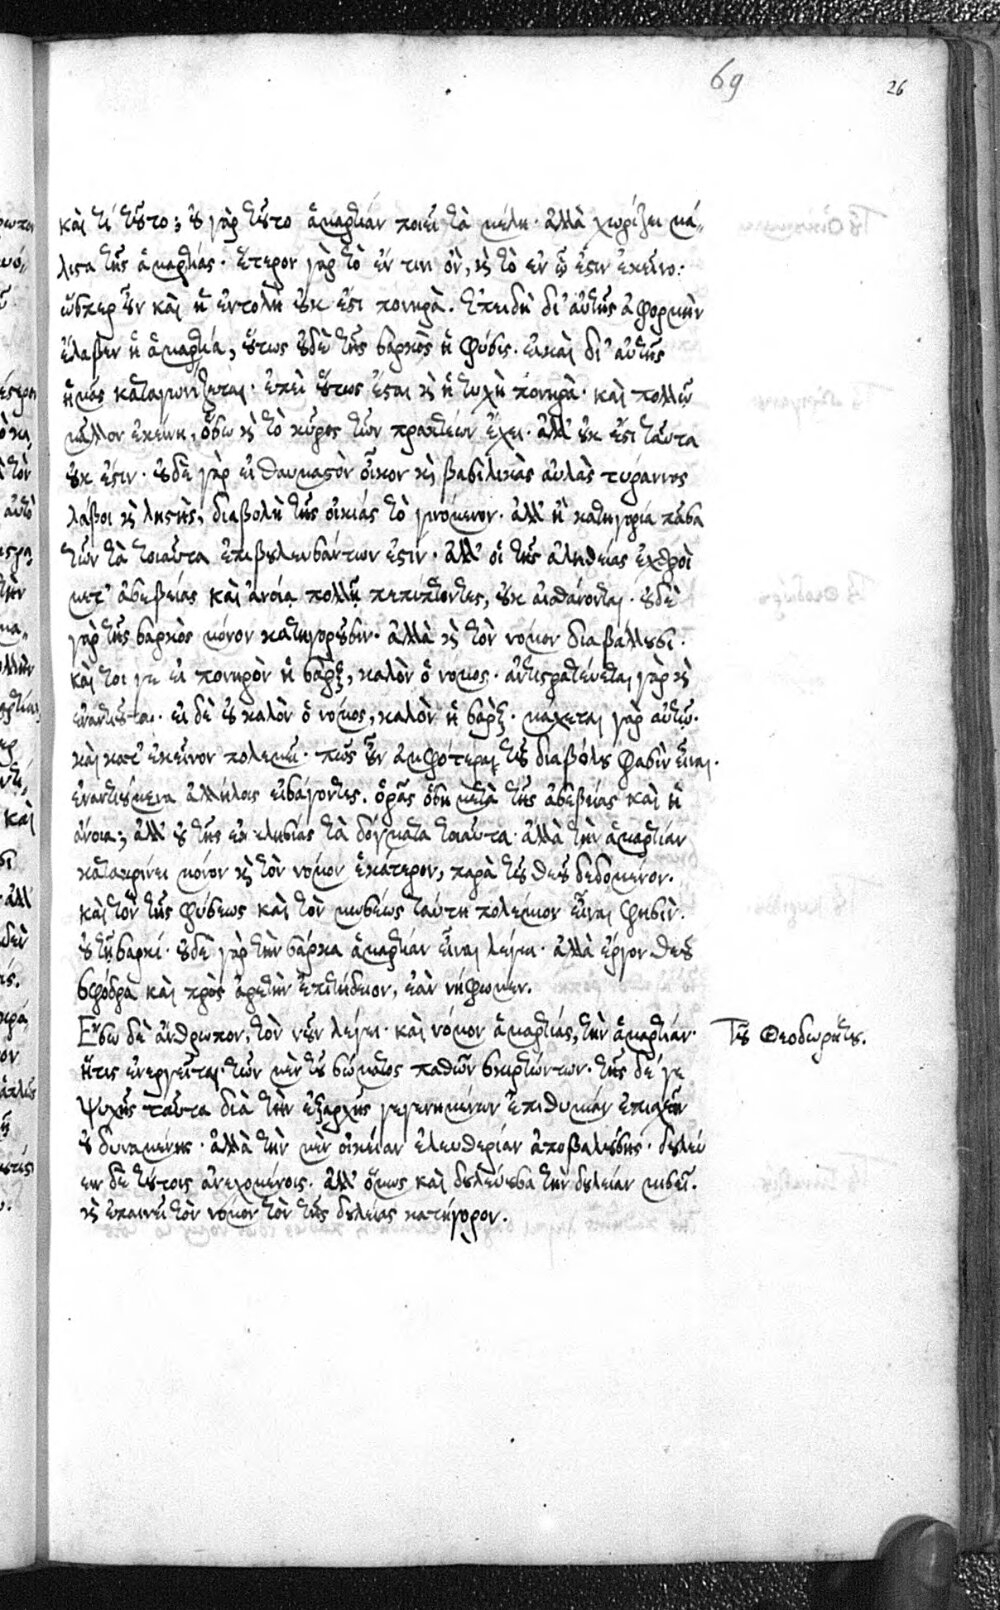 69
26
καὶ τί τοῦτο; οὐ γὰρ τοῦτο ἁμαρτίαν ποιεῖ τὰ μέλη· ἀλλὰ χωρίζει μά-
λιστα τῆς ἁμαρτίας. ἕτερον γὰρ τὸ ἔν τινι ὂν, καὶ τὸ ἐν ᾧ ἐστιν ἐκεῖνο:
ὥσπερ οὖν καὶ ἡ ἐντολὴ οὐκ ἔστι πονηρὰ. ἐπειδὴ δι' αὐτῆς ἀφορμὴν
ἔλαβεν ἡ ἁμαρτία, οὕτως οὐδὲ τῆς σαρκὸς ἡ φύσις. εἰ καὶ δι' αὐτῆς
ἡμᾶς καταγωνίζεται· ἐπεὶ οὕτως ἔσται καὶ ἡ ψυχὴ πονηρὰ· καὶ πολλῷ
μᾶλλον ἐκείνη, ὅσῳ καὶ τὸ κῦρος τῶν πρακτέων ἔχει· ἀλλ' οὐκ ἔστι ταῦτα
οὐκ ἔστιν· οὐδὲ γὰρ εἰ θαυμαστὸν οἶκον καὶ βασιλικὰς αὐλὰς τύραννος
λάβοι καὶ ληστὴς, διαβολὴ τῆς οἰκίας τὸ γινόμενον· ἀλλ' ἡ κατηγορία πᾶσα
τῶν τὰ τοιαῦτα ἐπιβουλευσάντων ἐστίν· ἀλλ' οἱ τῆς ἀληθείας ἐχθροὶ
μετ' ἀσεβείας καὶ ἀνοίᾳ πολλῇ περιπίπτοντες, οὐκ αἰσθάνονται· οὐδὲ
γὰρ τῆς σαρκὸς μόνον κατηγοροῦσιν· ἀλλὰ καὶ τὸν νόμον διαβάλλουσι·
καὶ τοι γε εἰ πονηρὸν ἡ σὰρξ, καλὸν ὁ νόμος· ἀντιστρατεύεται γὰρ καὶ
ἐναντιοῦται· εἰ δὲ οὐ καλὸν ὁ νόμος, καλὸν ἡ σὰρξ· μάχεται γὰρ αὐτῷ·
καὶ κατ' ἐκείνου πολεμεῖ· πῶς οὖν ἀμφότερα τοῦ διαβόλου φασὶν εἶναι·
ἐναντιούμενα ἀλλήλοις εἰσάγοντες. ὁρᾷς ὅση μετὰ τῆς ἀσεβείας καὶ ἡ
ἄνοια; ἀλλ' οὐ τῆς ἐκκλησίας τὰ δόγματα τοιαῦτα· ἀλλὰ τὴν ἁμαρτίαν
κατακρίνει μόνον καὶ τὸν νόμον ἑκάτερον, παρὰ τοῦ θεοῦ δεδομένον.
καὶ τὸν τῆς φύσεως καὶ τὸν μωσέως ταύτῃ πολέμιον εἶναι φησὶν.
οὐ τῇ σαρκὶ· οὐδὲ γὰρ τὴν σάρκα ἁμαρτίαν εἶναι λέγει· ἀλλὰ ἔργον θεοῦ
σφόδρα καὶ πρὸς ἀρετὴν ἐπιτήδειον, ἐὰν νήφωμεν.
Ἔσω δὲ ἄνθρωπον, τὸν νοῦν λέγει· καὶ νόμον ἁμαρτίας, τὴν ἁμαρτίαν·
Τοῦ Θεοδωρήτου.
ἥτις ἐνεργεῖται· τῶν μὲν τοῦ σώματος παθῶν σκιρτώντων· τῆς δέ γε
ψυχῆς ταῦτα διὰ τὴν ἐξαρχῆς γεγενημένην ἐπιθυμίαν ἐπισχεῖν
οὐ δυναμένης· ἀλλὰ τὴν μὲν οἰκείαν ἐλευθερίαν ἀποβαλούσης· δουλεύ
ειν δὲ τούτοις ἀνεχομένοις· ἀλλ' ὅμως καὶ δουλεύουσα τὴν δουλείαν μισεῖ.
καὶ ἐπαινεῖ τὸν νόμον τὸν τῆς δουλείας κατήγορον.